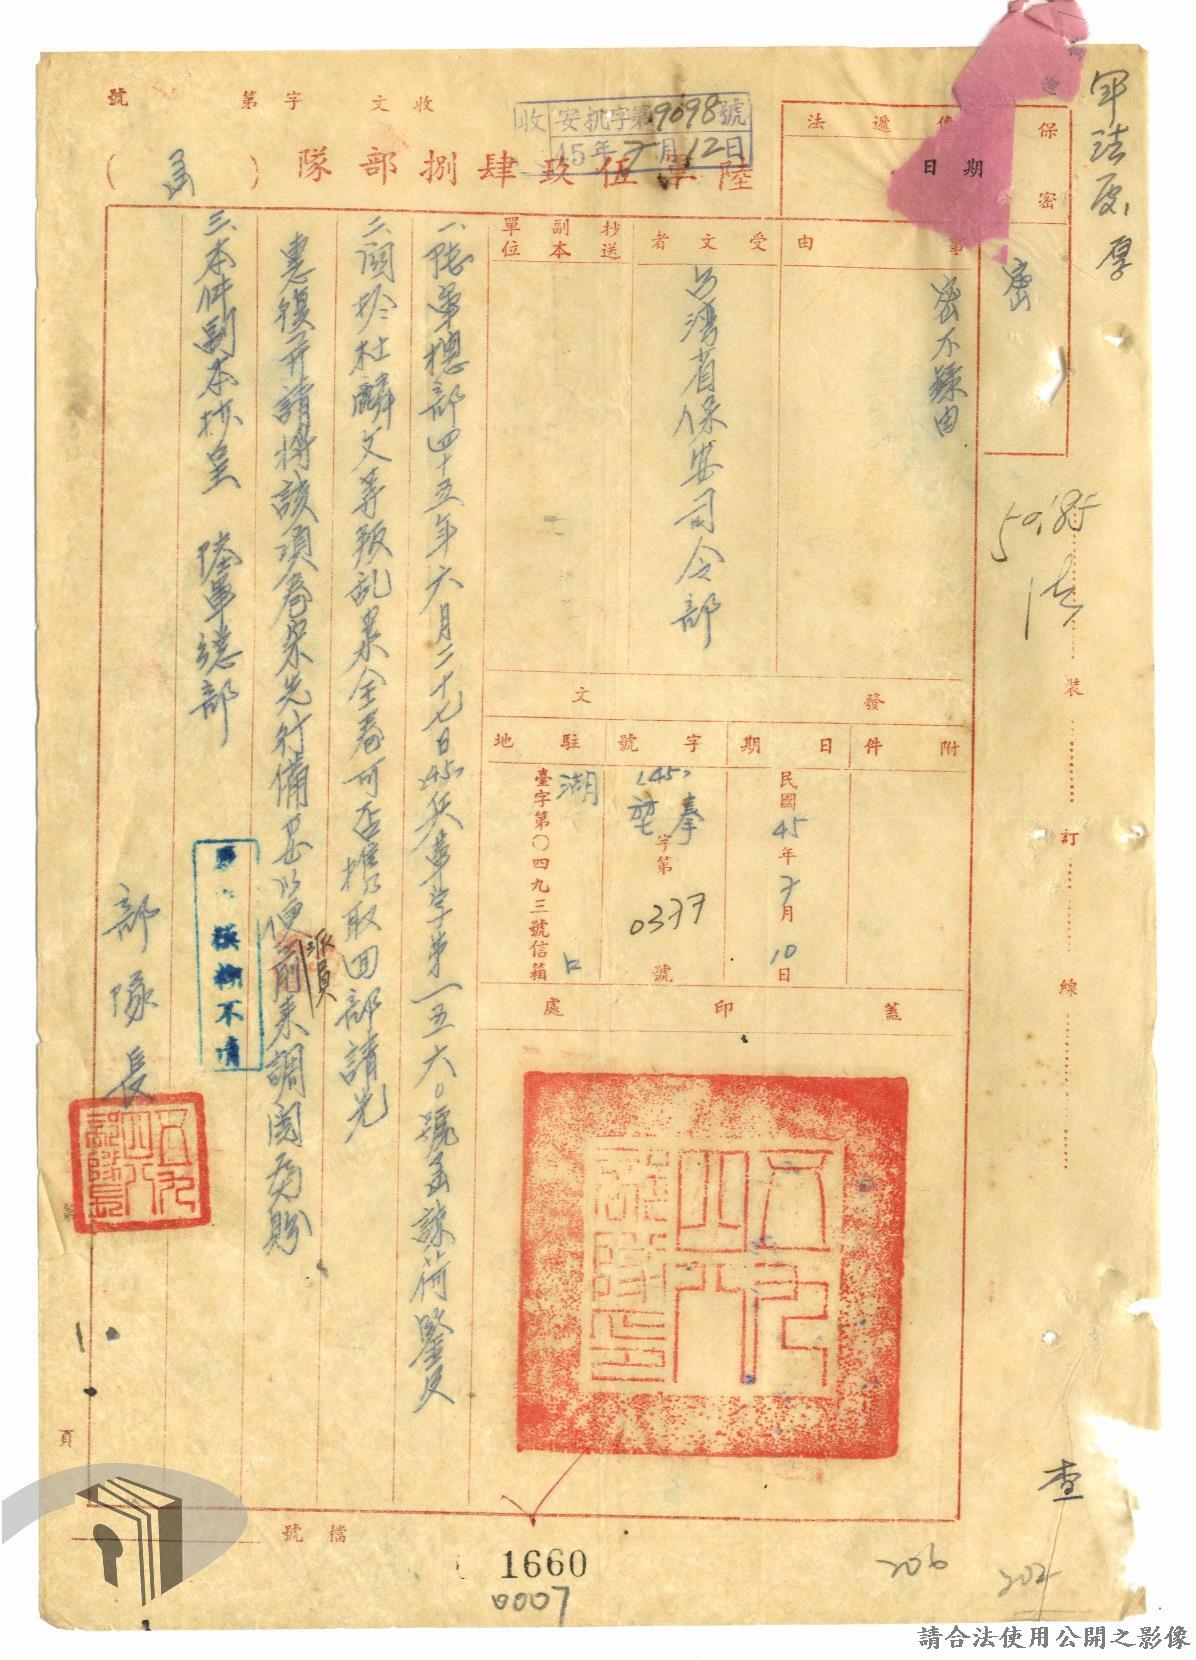 軍法處 厚
保密
密
傳遞法
日期
收文 字第 號
收 安机字第9098號
45年7月12日
陸軍伍玖肆捌部隊(函)
事由
密不錄由
受文者
台灣省保安司令部
抄送副本單位
發文
附件
日期
民國45年7月10日
字號
(45) 字第0377號
駐地
湖口
臺字第〇四九三號信箱
蓋印處
一、陸軍總部四十五年六月二十七日(45) 字第一五六〇號函諒荷鑒及
二、關於杜麟文等叛乱案全卷可否携取回部請先
惠復并請將該項卷案先行備妥以便派員前來調閱為盼
三、本件副本抄呈 陸軍總部
模糊不清
部隊長
五九四八部隊長
五九四八部隊印
裝
訂
線
查
頁
檔號
1660
0007
206
202
請合法使用公開之影像